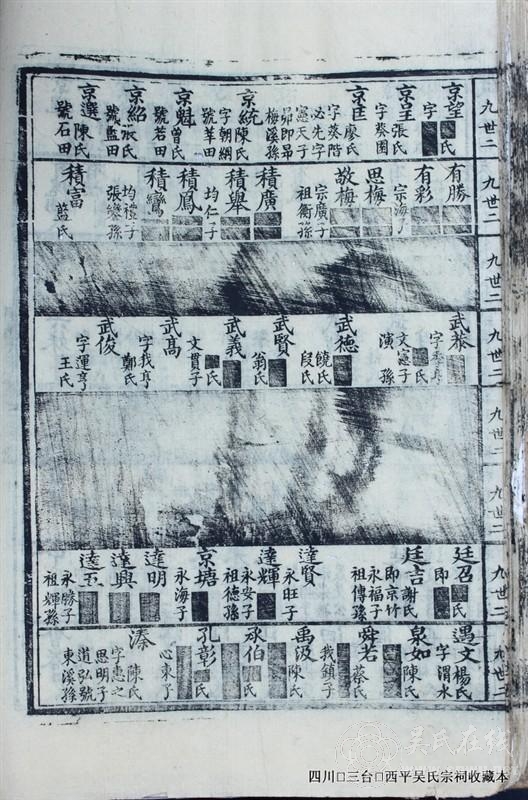 九世二
京望 字 氏
京呈 張氏 字葵園
京匡 廖氏 字葵階
必先字
憲天子
昴即昂
梅溪孫
京統 陳氏 字朝綱 號華田
京魁 曾氏 號若田
京紹 張氏 號藍田
京選 陳氏 號石田
九世二
有勝
有彩
思梅 宗海子
敬梅 宗廣子 祖衡孫
積廣
積舉 均仁子
積鳳
積鸞 均禮子 張鑾孫
積富 藍氏
九世二
九世二
武泰 字季亨 氏
文憲子
演孫
武德 饒氏 段氏
武賢 翁氏
武義 氏 文貫子
武高 字我亨 鄭氏
武俊 字運亨 王氏
九世二
九世二
九世二
廷召 即 氏
廷吉 謝氏 即京竹 永福子 祖傳孫
達賢 永旺子
達輝 永安子 祖德孫
京塘 永海子
達明
達興
達玉 永勝子 祖輝孫
九世二
遇文 楊氏 字渭水
泉如 陳氏
舜若 蔡氏 我鎮子
禹汲 陳氏
承伯 氏
孔彰 氏 心東子
溱 陳氏 字惠之 思明子 道弘號 東溪孫
吴氏在线
四川□三台□西平吴氏宗祠收藏本